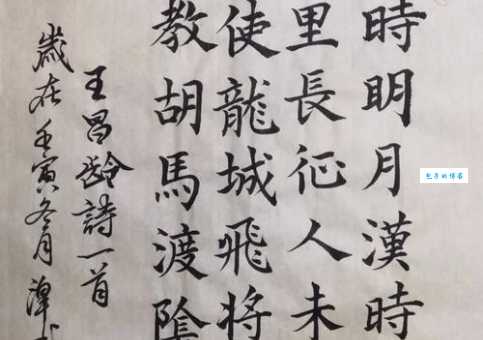 時明月漢時
里長征人未
使龍城飛將
教胡馬渡陰
王昌齡詩一首
歲在壬寅冬月
的博客